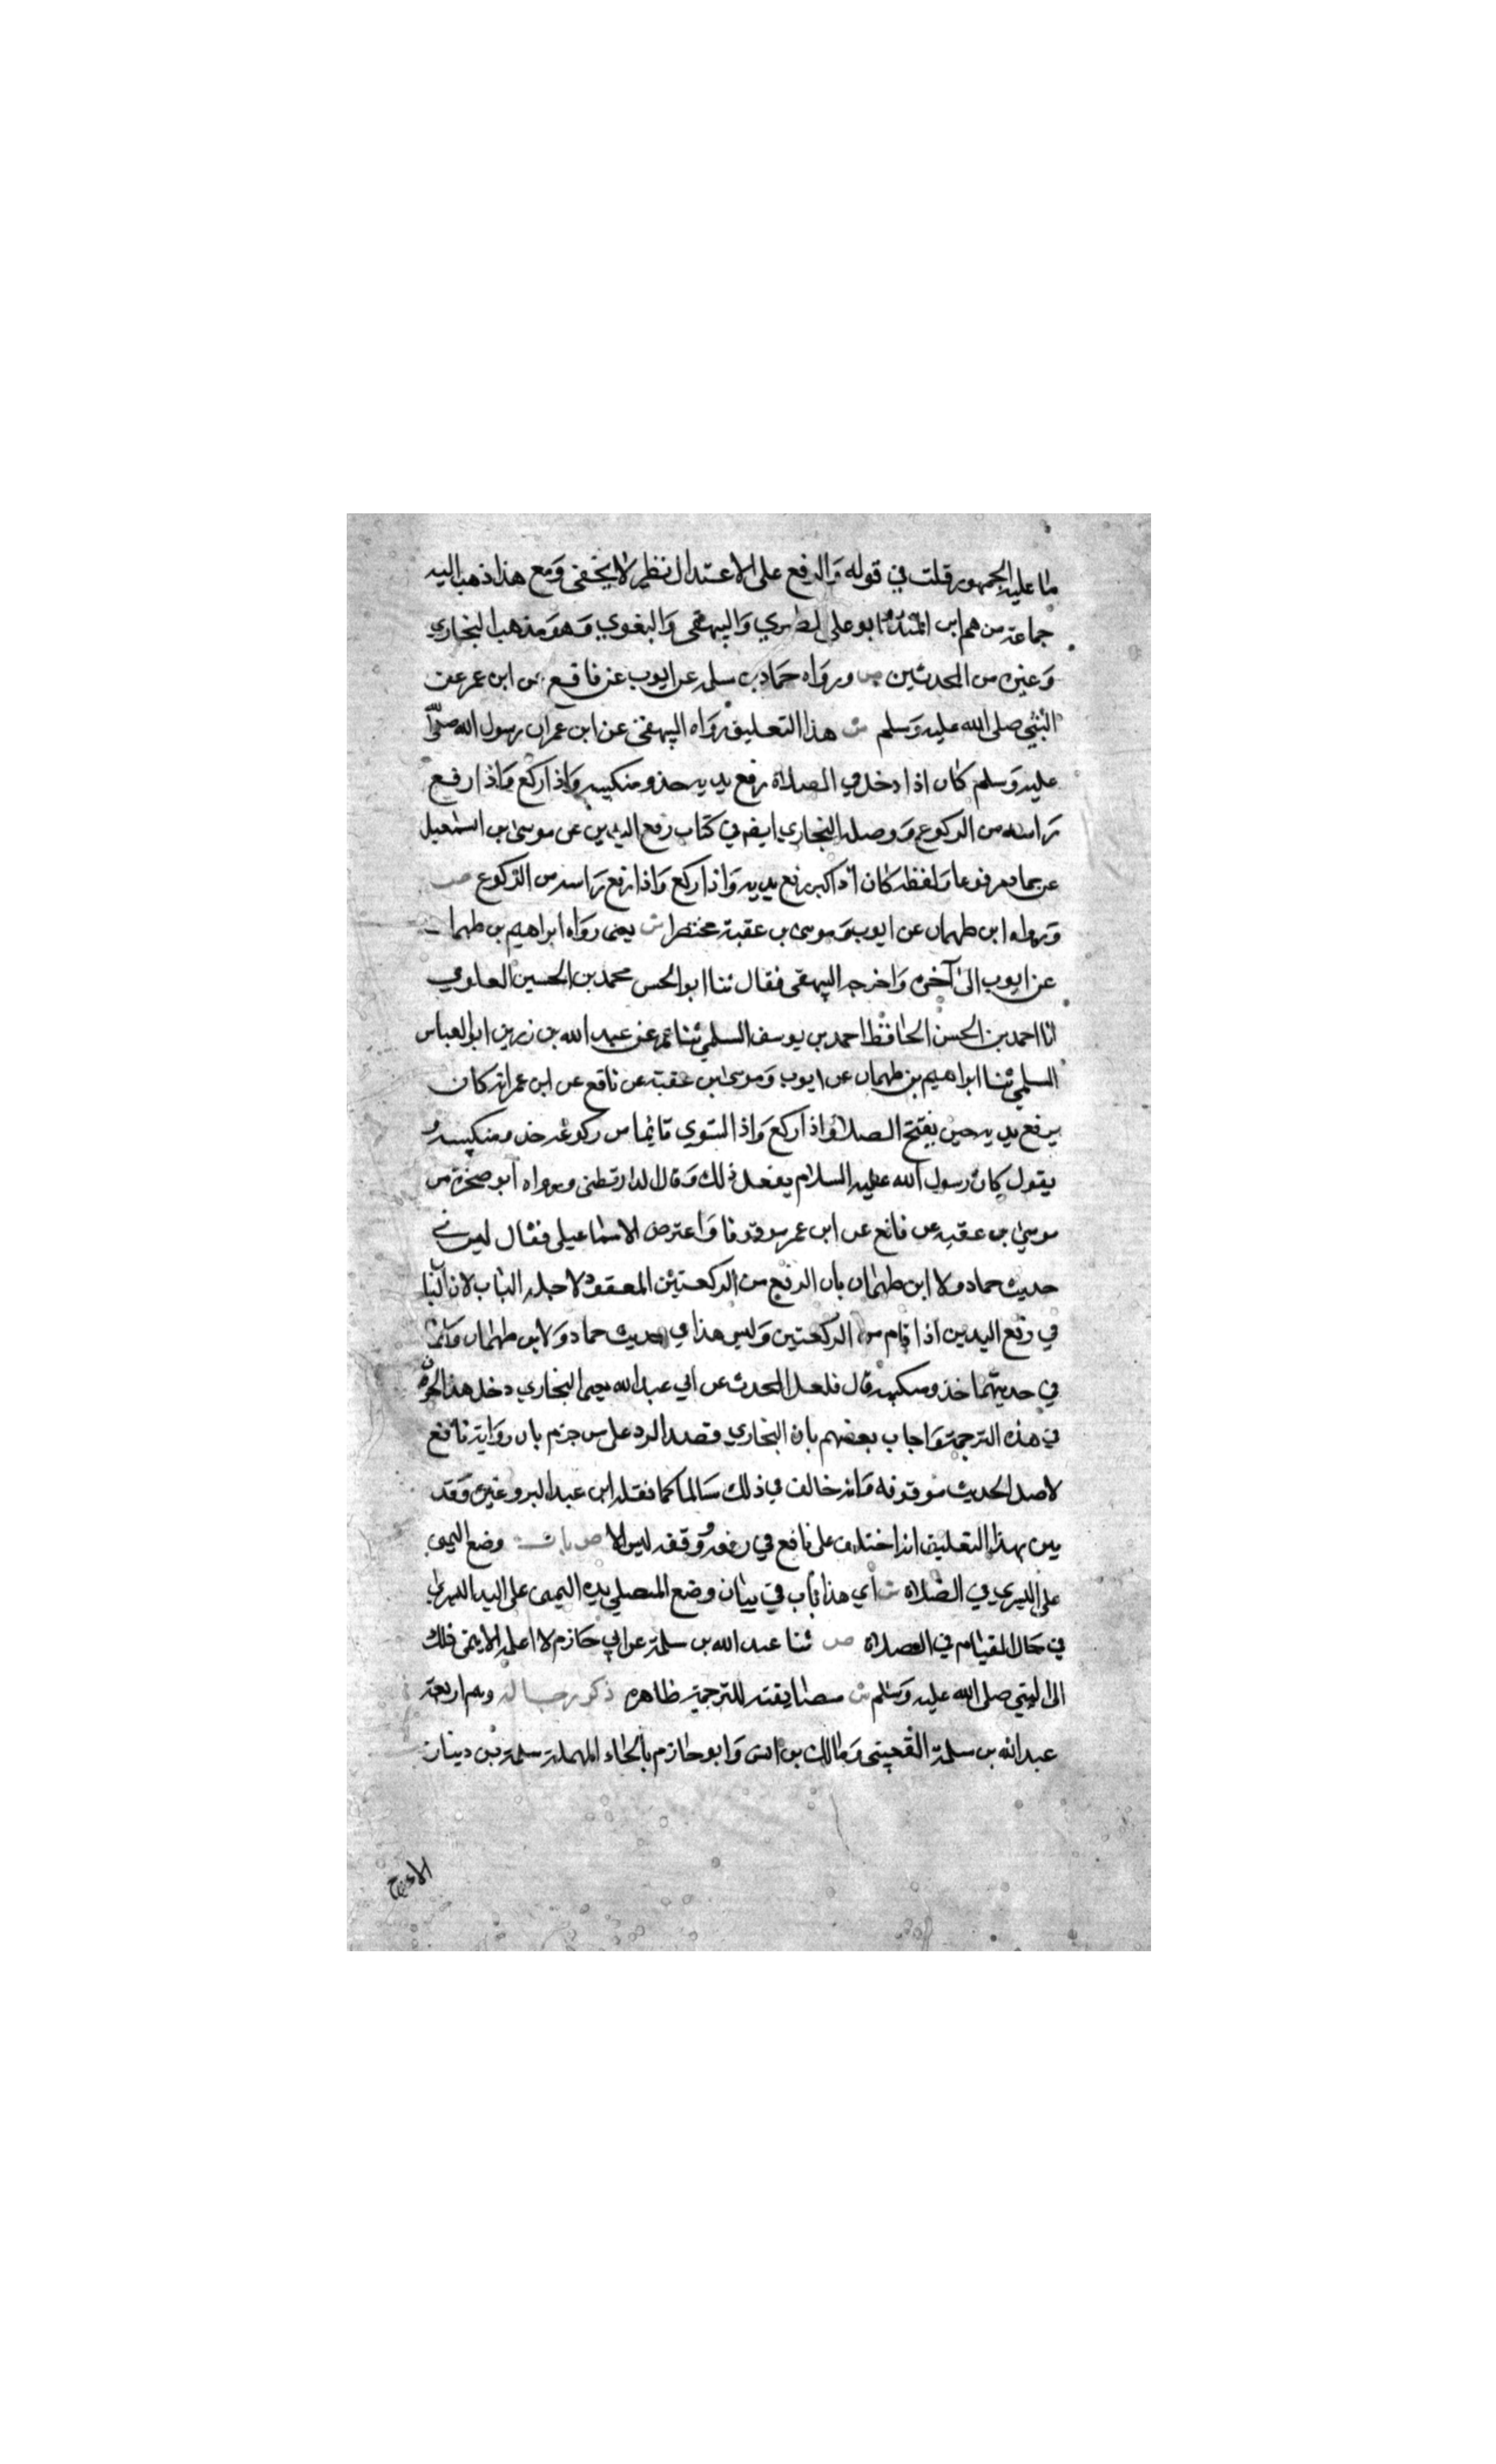 ما عليه الجمهور قلت في قوله والرفع على الاعتدال نظر لا يخفى ومع هذا ذهب اليه
جماعة من هم ابن المنذر وابو على الطبري والبيهقى والبغوي وهو مذهب البخاري
وغيره من المحدثين ص ورواه حماد بن سلمه عن ايوب عن نافع عن ابن عمر عن
النبي صلى الله عليه وسلم ش هذا التعليق رواه البيهقى عن ابن عمر ان رسول الله صلى الله
عليه وسلم كان اذا دخل في الصلاة رفع يديه حذو منكبيه واذا ركع واذا رفع
راسه من الركوع ووصله البخاري ايضا في كتاب رفع اليدين عن موسى بن اسمعيل
عن حماد مرفوعا ولفظه كان اذا كبر رفع يديه واذا ركع واذا رفع راسه من الركوع ص
ورواه ابن طهمان عن ايوب وموسى بن عقبة مختصرا ش يعنى رواه ابراهيم بن طهمان
عن ايوب الى آخره واخرجه البيهقى فقال ثنا ابو الحسن محمد بن الحسين العلوي
انا احمد بن الحسن الحافظ احمد بن يوسف السلمي ثنا عمر عن عبد الله بن رزين ابو العباس
السلمي ثنا ابراهيم بن طهمان عن ايوب وموسى بن عقبة عن نافع عن ابن عمر انه كان
يرفع يديه حين يفتح الصلاة واذا ركع واذا استوي قائما من ركوعه حذو منكبيه و
يقول كان رسول الله عليه السلام يفعل ذلك وقال الدارقطنى ورواه ابو صخرة عن
موسى بن عقبه عن نافع عن ابن عمر موقوفا واعترض الاسماعيلى فقال ليس في
حديث حماد ولا ابن طهمان بان الرفع من الركعتين المعقود لاجله الباب لان الباب
في رفع اليدين اذا قام من الركعتين وليس هذا في حديث حماد ولا ابن طهمان وانما
في حديثهما حذو منكبيه قال فلعل المحدث عن ابي عبد الله يعني البخاري دخل هذا الحرف
في هذه الترجمة واجاب بعضهم بان البخاري قصد الرد على من جزم بان رواية نافع
لاصل الحديث موقوفة وانه خالف في ذلك سالما كما نقله ابن عبد البر وغيره وقد
بين بهذا التعليق انه اختلف على نافع في رفعه ووقفه ليس الا ص باب وضع اليمنى
على اليسري في الصلاة ش اي هذا باب في بيان وضع المصلي يده اليمنى على اليد اليسري
في حال القيام في الصلاة ص ثنا عبد الله بن سلمة عن ابي حازم لا اعلمه الا ينمى ذلك
الى النبي صلى الله عليه وسلم ش مطابقته للترجمة ظاهره ذكر رجاله وهم اربعة
عبد الله بن سلمة القعنبي ومالك بن انس وابو حازم بالحاء المهملة سلمة بن دينار
الاعرج